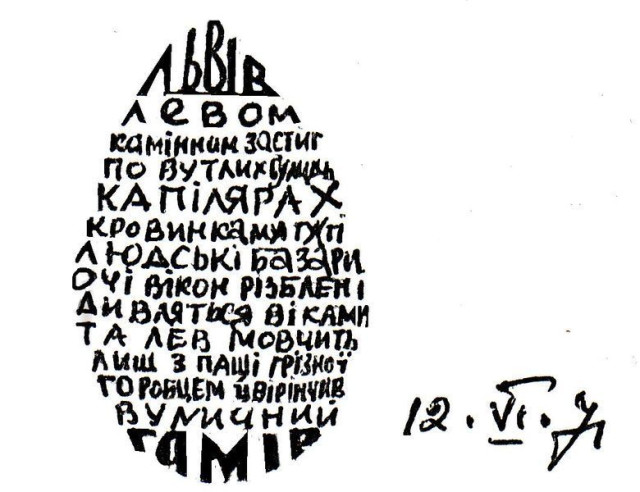 ЛЬВІВ
ЛЕВОМ
КАМІННИМ ЗАСТИГ
ПО ВУТЛИХ ВУЛИЦЬ
КАПІЛЯРАХ
КРОВИНКАМИ
ЛЮДСЬКІ БАЗАРИ
ОЧІ ВІКОН РІЗБЛЕНІ
ДИВЛЯТЬСЯ ВІКАМИ
ТА ЛЕВ МОВЧИТЬ
ЛИШ З ПАЩІ ГРІЗНОЇ
ГОРОБЦЕМ ЦВІРІНЧИВ
ВУЛИЧНИЙ
ГАМІР
12. VI.